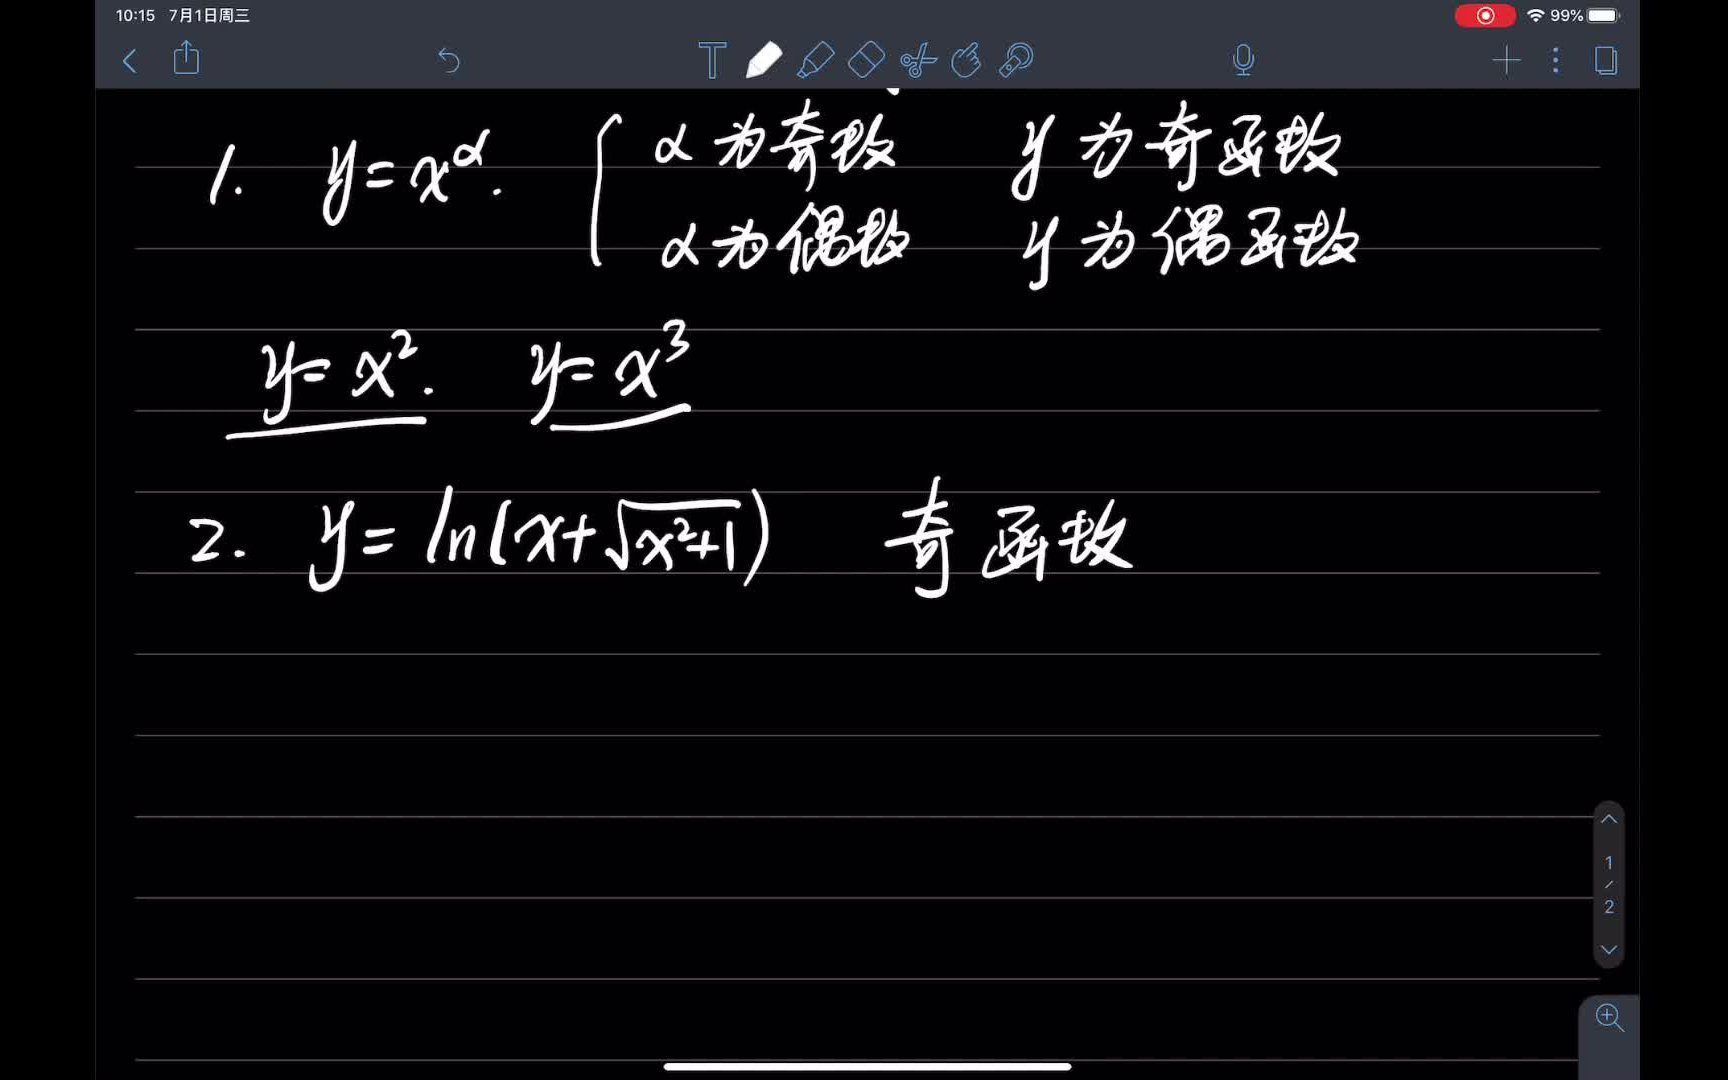 10:15 7月1日周三 99%
1. y=x^α. { α为奇数 y为奇函数
α为偶数 y为偶函数
y=x². y=x³
2. y=ln(x+√(x²+1)) 奇函数
1
/
2